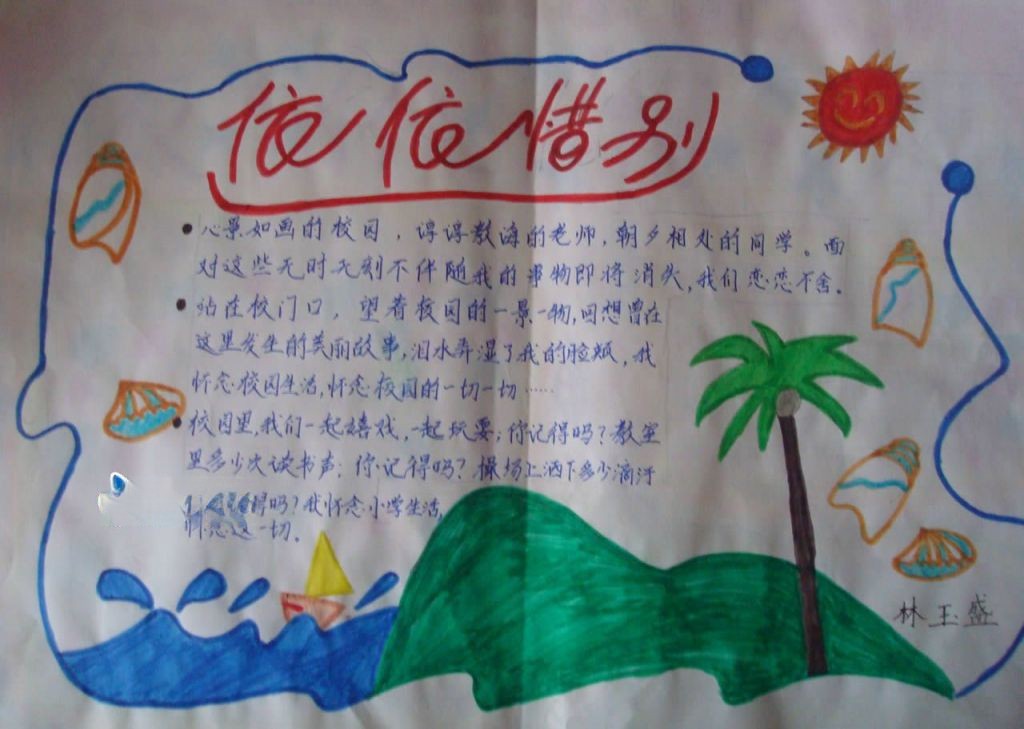 依依惜别
心景如画的校园，谆谆教海的老师，朝夕相处的同学。面
对这些无时无刻不伴随我的事物即将消失，我们恋恋不舍。
站在校门口，望着校园的一景一物，回想曾在
这里发生的美丽故事，泪水弄湿了我的脸颊，我
怀念校园生活，怀念校园的一切一切……
校园里，我们一起嬉戏，一起玩耍；你记得吗？教室
里多少次读书声；你记得吗？操场上洒下多少滴汗
得吗？我怀念小学生活，
怀念这一切。
林玉盛